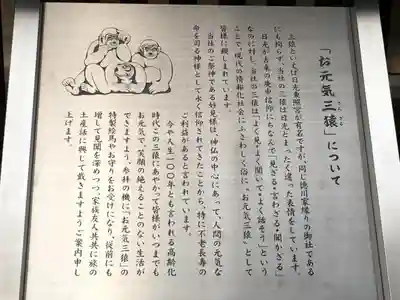 「お元気三猿」について
三猿といえば日光東照宮が有名ですが、同じ徳川家縁りの御社である
にも拘らず、当社の三猿は日光とまったく違った表情をしています。
日光が古来の庚申信仰にちなんで「見ざる・言わざる・聞かざる」
なのに対し、当社の三猿は「よく見・よく聞いて・よく話そう」という
ことで、現代の情報化社会にふさわしく俗に〝お元気三猿〟として
皆様に親しまれています。
当社のご祭神である妙見様は、神仏の中心にあって、人間の元気な
命を司る神様として永く信仰されてきたことから、特に不老長寿の
ご利益があると言われています。
今や人生一〇〇年とも言われる高齢化
時代この三猿にあやかって皆様がいつまでも
お元気で、笑顔の絶えることのない生活が
できますよう、参拝の機に「お元気三猿」の
特製絵馬やお守りをお受けになり、従前にも
増して見聞を深めつつ、家族友人共共に旅の
土産話に興じて戴きますようご案内申し
上げます。